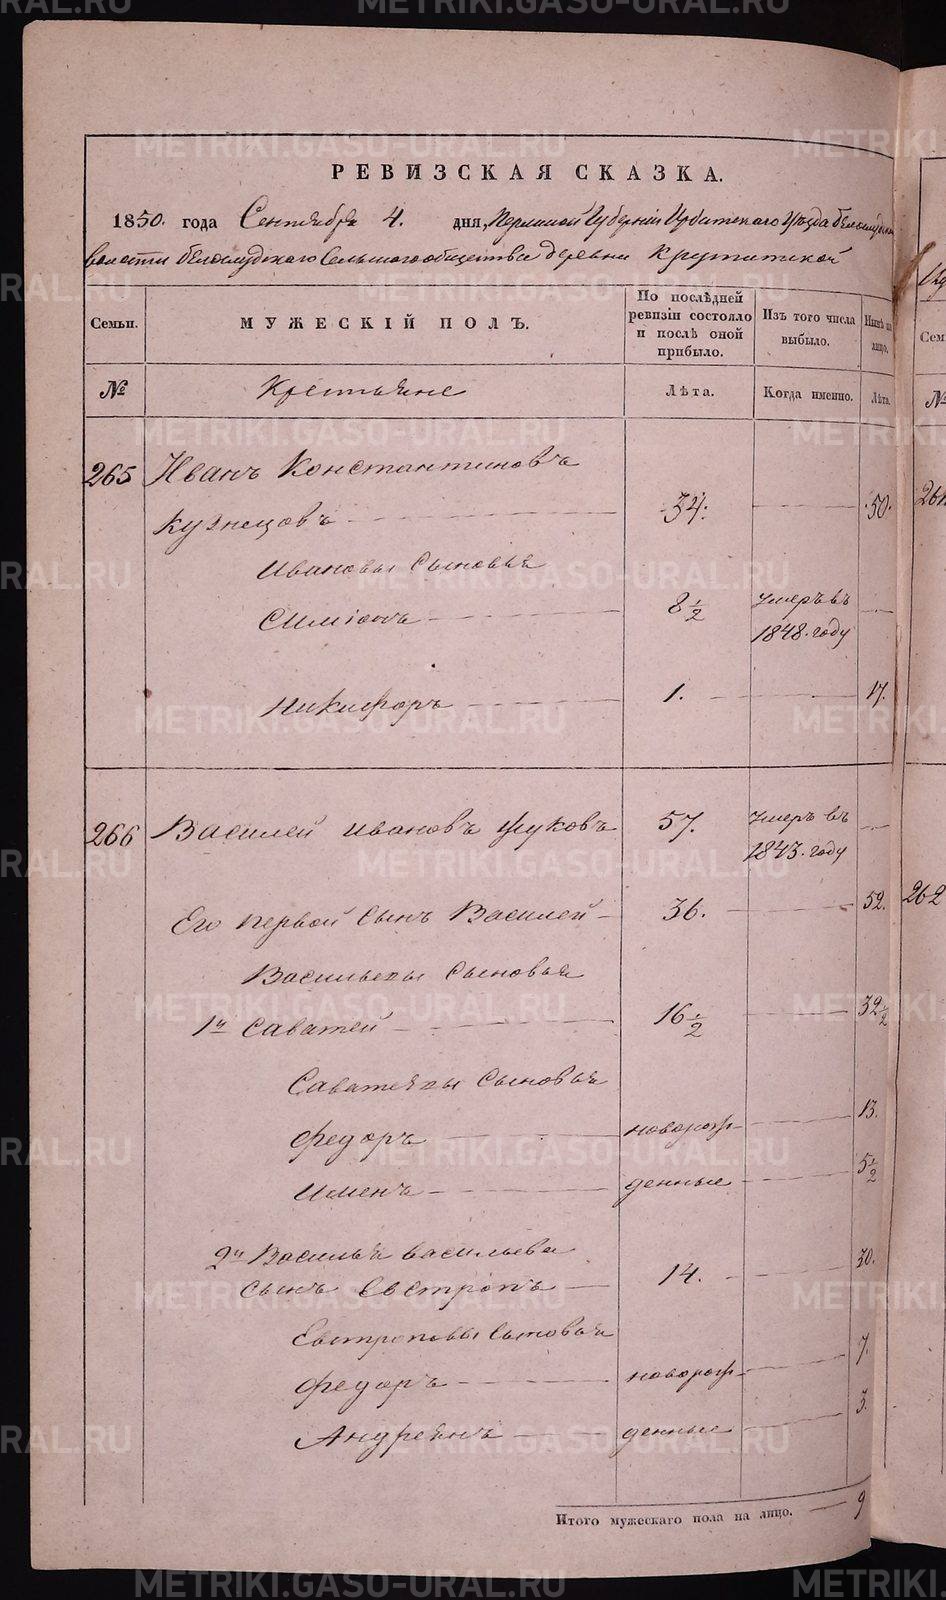 METRIKI.GASO-URAL.RU
РЕВИЗСКАЯ СКАЗКА.
1850. года Сентября 4. дня, Пермской Губерніи Ирбитскаго Уѣзда
волости Белослудскаго Сельскаго общества деревни Крутитской
Семьи. МУЖЕСКІЙ ПОЛЪ. По послѣдней ревизіи состояло и послѣ оной прибыло. Изъ того числа выбыло. Нынѣ на лицо.
№ Крестьяне Лѣта. Когда именно. Лѣта.
265 Иванъ Константиновъ
Кузнецовъ 34. 50.
Ивановы Сыновья
Симіонъ 8 1/2 Умеръ въ 1848. году
Никифоръ 1. 17.
266 Василей Ивановъ Жуковъ 57. Умеръ въ 1843. году
Его первой Сынъ Василей 36. 52.
Васильевы Сыновья
1й Саватей 16 1/2 32 1/2
Саватеевы Сыновья
Федоръ новорож- 13.
Именъ денные 5 1/2
2й Василья Васильева
Сынъ Евстропъ 14. 30.
Евстроповы Сыновья
Федоръ новорож- 7.
Андреянъ денные 3.
Итого мужескаго пола на лицо. 9
262